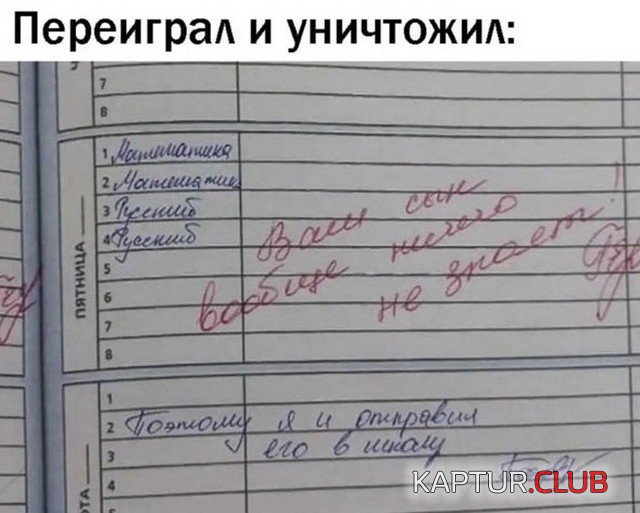 Переиграл и уничтожил:
7
8
ПЯТНИЦА
1 Математика
2 Математик
3 Русский
4 Русский
5
6
7
8
Ваш сын
вообще ничего
не знает!
1
2 Поэтому я и отправил
3 его в школу
4
KAPTUR.CLUB